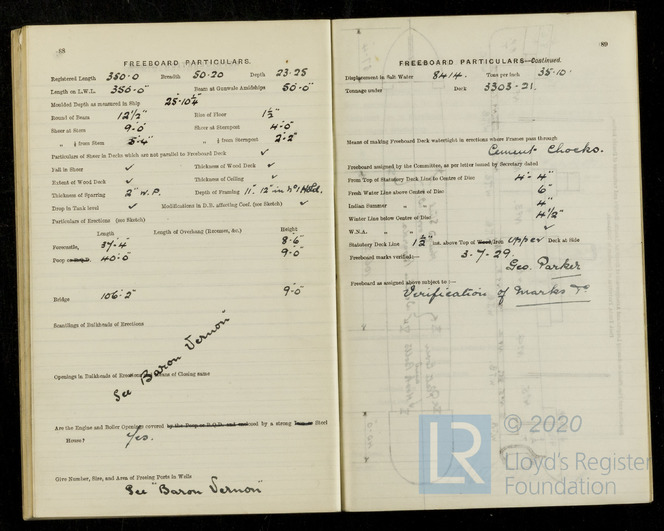 88
FREEBOARD PARTICULARS.
Registered Length 350·0 Breadth 50·20 Depth 23·25
Length on L.W.L. 350'·0" Beam at Gunwale Amidships 50'·0"
Moulded Depth as measured in Ship 25'·10¼"
Round of Beam 12½" Rise of Floor 1½"
Sheer at Stem 9'·0" Sheer at Sternpost 4'·0"
" ⅛ from Stem 5'·4" " ⅛ from Sternpost 2'·2"
Particulars of Sheer in Decks which are not parallel to Freeboard Deck ✓
Fall in Sheer ✓ Thickness of Wood Deck ✓
Extent of Wood Deck ✓ Thickness of Ceiling ✓
Thickness of Sparring 2" W.P. Depth of Framing 11". 12" in No 1 Hold.
Drop in Tank level ✓ Modifications in D.B. affecting Coef. (see Sketch) ✓
Particulars of Erections (see Sketch)
Length Length of Overhang (Recesses, &c.) Height
Forecastle, 37'·4" 8'·6"
Poop or R.Q.D. 40'·0" 9'·0"
Bridge 106'·2" 9'·0"
Scantlings of Bulkheads of Erections
Openings in Bulkheads of Erections, Means of Closing same
See Baron Vernon"
Are the Engine and Boiler Openings covered by the Poop or R.Q.D. and enclosed by a strong Iron or Steel
House? Yes.
Give Number, Size, and Area of Freeing Ports in Wells
See "Baron Vernon"
89
FREEBOARD PARTICULARS—Continued.
Displacement in Salt Water 8414. Tons per inch 35·10·
Tonnage under Deck 3303·21.
Means of making Freeboard Deck watertight in erections where Frames pass through
Cement Chocks.
Freeboard assigned by the Committee, as per letter issued by Secretary dated
From Top of Statutory Deck Line to Centre of Disc 4'·4"
Fresh Water Line above Centre of Disc 6"
Indian Summer " 4"
Winter Line below Centre of Disc 4½"
W.N.A. " " ✓
Statutory Deck Line 1½" ins. above Top of Wood/Iron Upper Deck at Side
Freeboard marks verified:— 3·7·29.
Geo. Parker
Freeboard as assigned above subject to:—
Verification of Marks &c
© 2020
LR
Lloyd's Register
Foundation